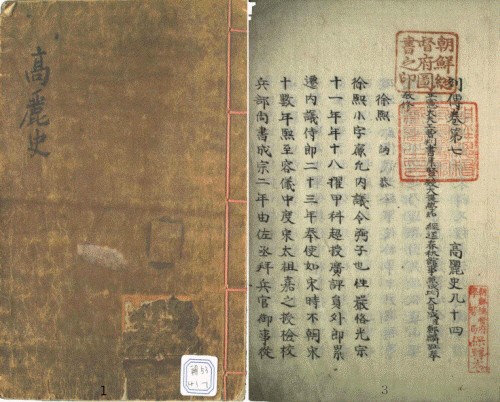 高麗史
1
朝鮮總
督府圖
書之印
列傳卷第七 高麗史九十四
正憲大夫工曹判書集賢殿大提學知 經筵春秋館事兼成均大司成臣鄭麟趾奉
教修
徐熙 訥 恭
徐熙小字廉允內議令弼子也性嚴恪光宗
十一年年十八擢甲科超授廣評員外郎累
遷內議侍郎二十三年奉使如宋時不朝宋
十數年熙至容儀中度宋太祖嘉之授檢校
兵部尙書成宗二年由佐丞拜兵官御事從
3